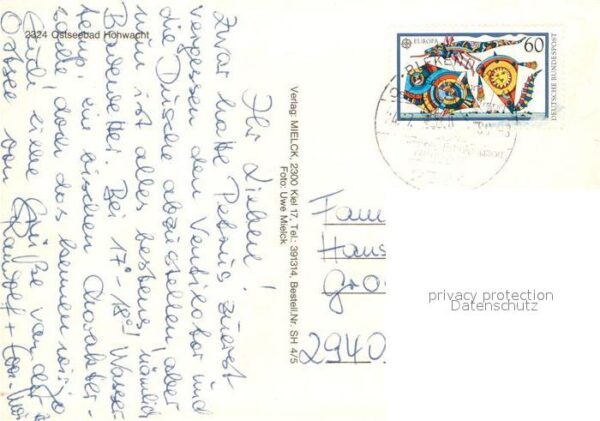 2324 Ostseebad Hohwacht
Ihr Lieben!
Zwar hatte Petrus zuerst
vergessen den Ventilator und
die Dusche abzustellen, aber
nun ist alles bestens, nämlich
Badewetter. Bei 17°-18° Wasser-
temp. ein bisschen Charakter-
sache, doch das kennen wir ja
Euch liebe Grüße von der
Ostsee von
Verlag: MIELCK, 2300 Kiel 17, Tel.: 391314, Bestell.Nr. SH 4/5
Foto: Uwe Mielck
EUROPA
60
DEUTSCHE BUNDESPOST
Fam
Hans
Gro
2940
privacy protection
Datenschutz